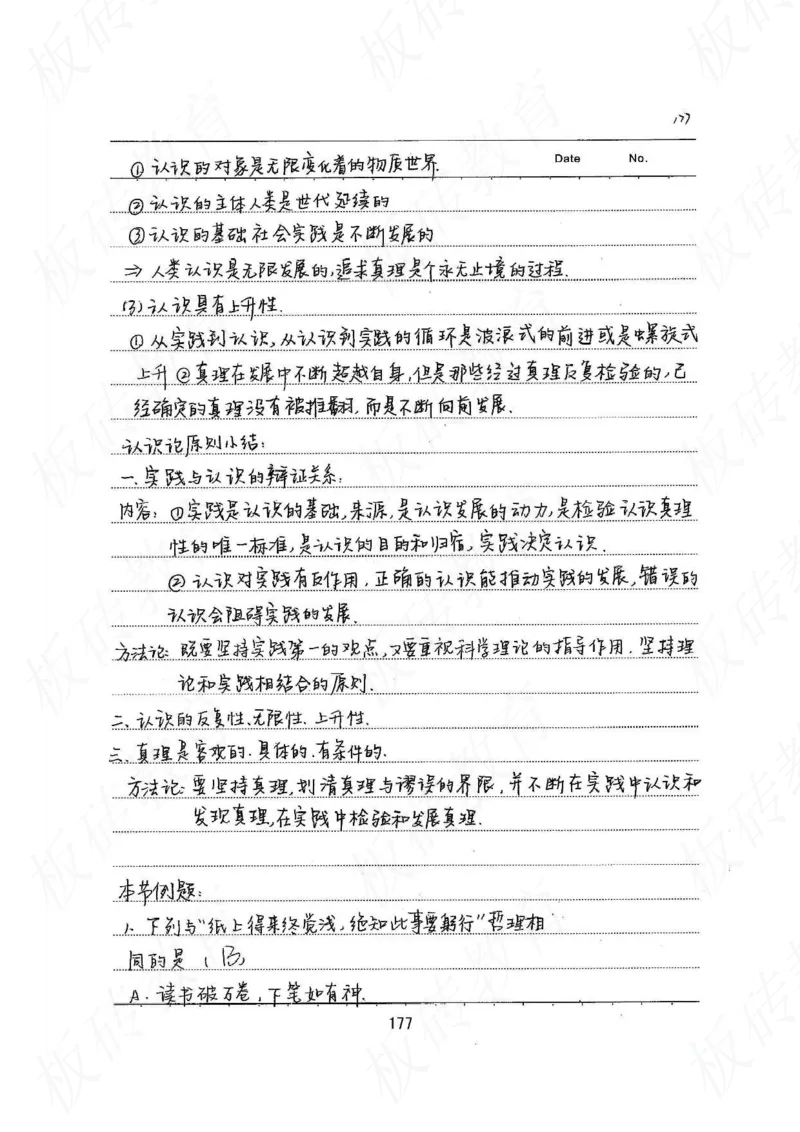 177
Date No.
①认识的对象是无限变化着的物质世界.
②认识的主体人类是世代延续的
③认识的基础社会实践是不断发展的
⇒人类认识是无限发展的,追求真理是个永无止境的过程.
(3)认识具有上升性.
①从实践到认识,从认识到实践的循环是波浪式的前进或是螺旋式
上升 ②真理在发展中不断超越自身,但是那些经过真理反复检验的,已
经确定的真理没有被推翻,而是不断向前发展.
认识论原则小结:
一.实践与认识的辩证关系:
内容: ①实践是认识的基础,来源,是认识发展的动力,是检验认识真理
性的唯一标准,是认识的目的和归宿,实践决定认识.
②认识对实践有反作用,正确的认识能推动实践的发展,错误的
认识会阻碍实践的发展.
方法论: 既要坚持实践第一的观点,又要重视科学理论的指导作用.坚持理
论和实践相结合的原则.
二、认识的反复性、无限性、上升性.
三.真理是客观的.具体的.有条件的.
方法论: 要坚持真理,划清真理与谬误的界限,并不断在实践中认识和
发现真理,在实践中检验和发展真理.
本节例题:
1. 下列与"纸上得来终觉浅,绝知此事要躬行"哲理相
同的是 (B)
A. 读书破万卷,下笔如有神.
177
板砖教育